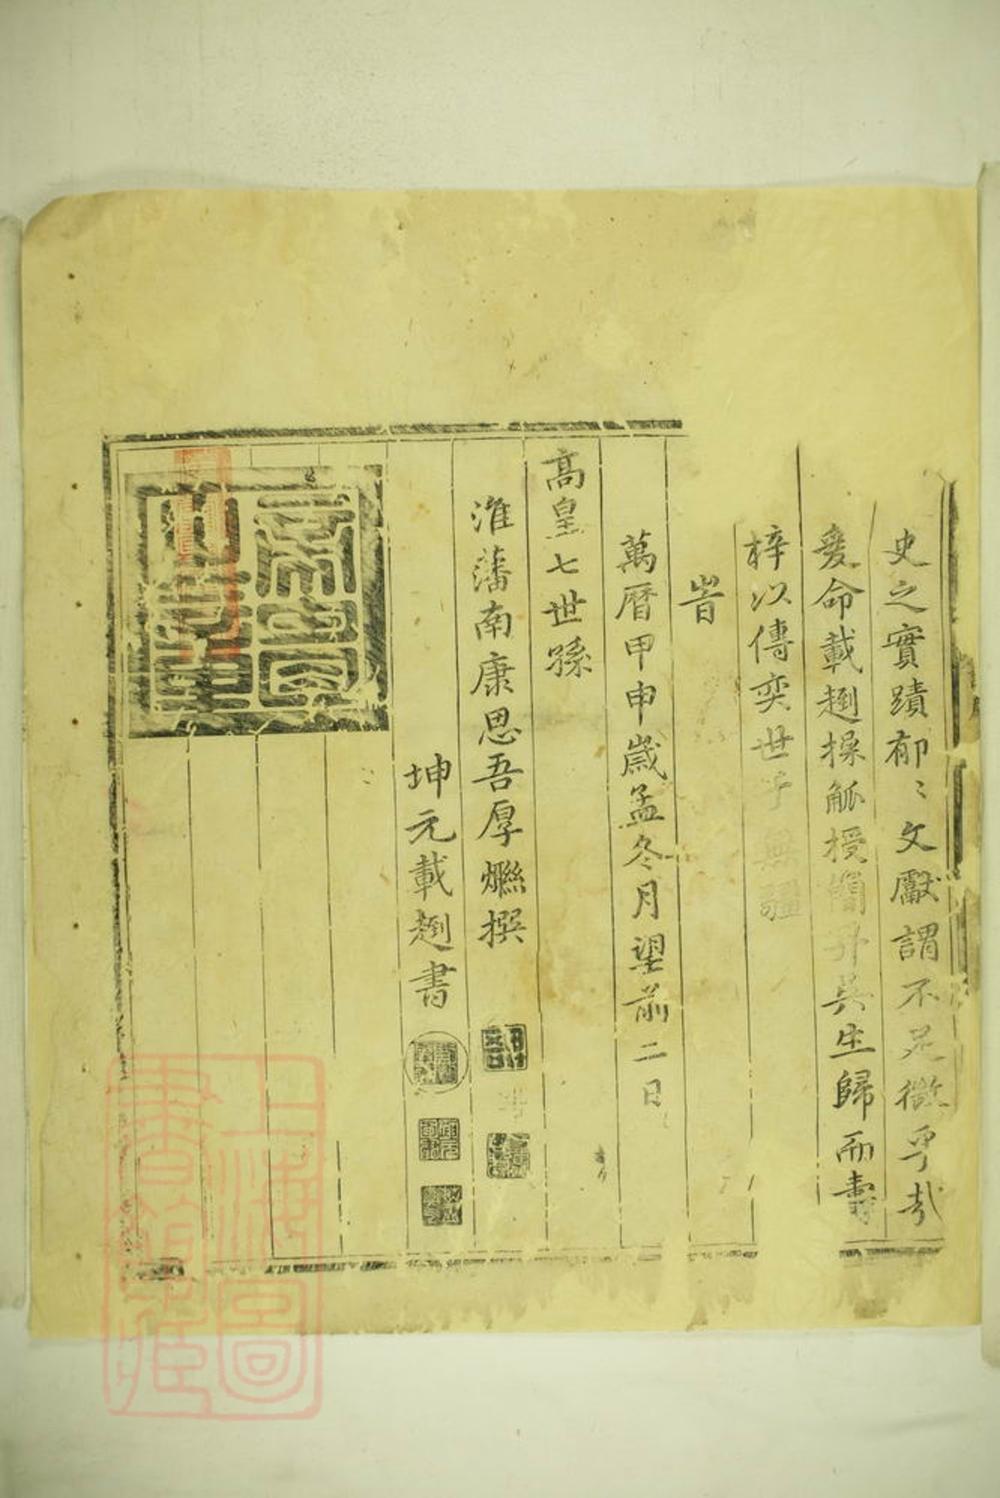 史之實蹟郁〻文獻謂不足徵乎哉
爰命載趔操觚授簡升吳生歸而壽
梓以傳奕世乎無疆
旹
萬曆甲申嵗孟冬月望前二日
高皇七世孫
淮藩南康思吾厚𤓖撰
坤元載趔書
上海圖
書館藏